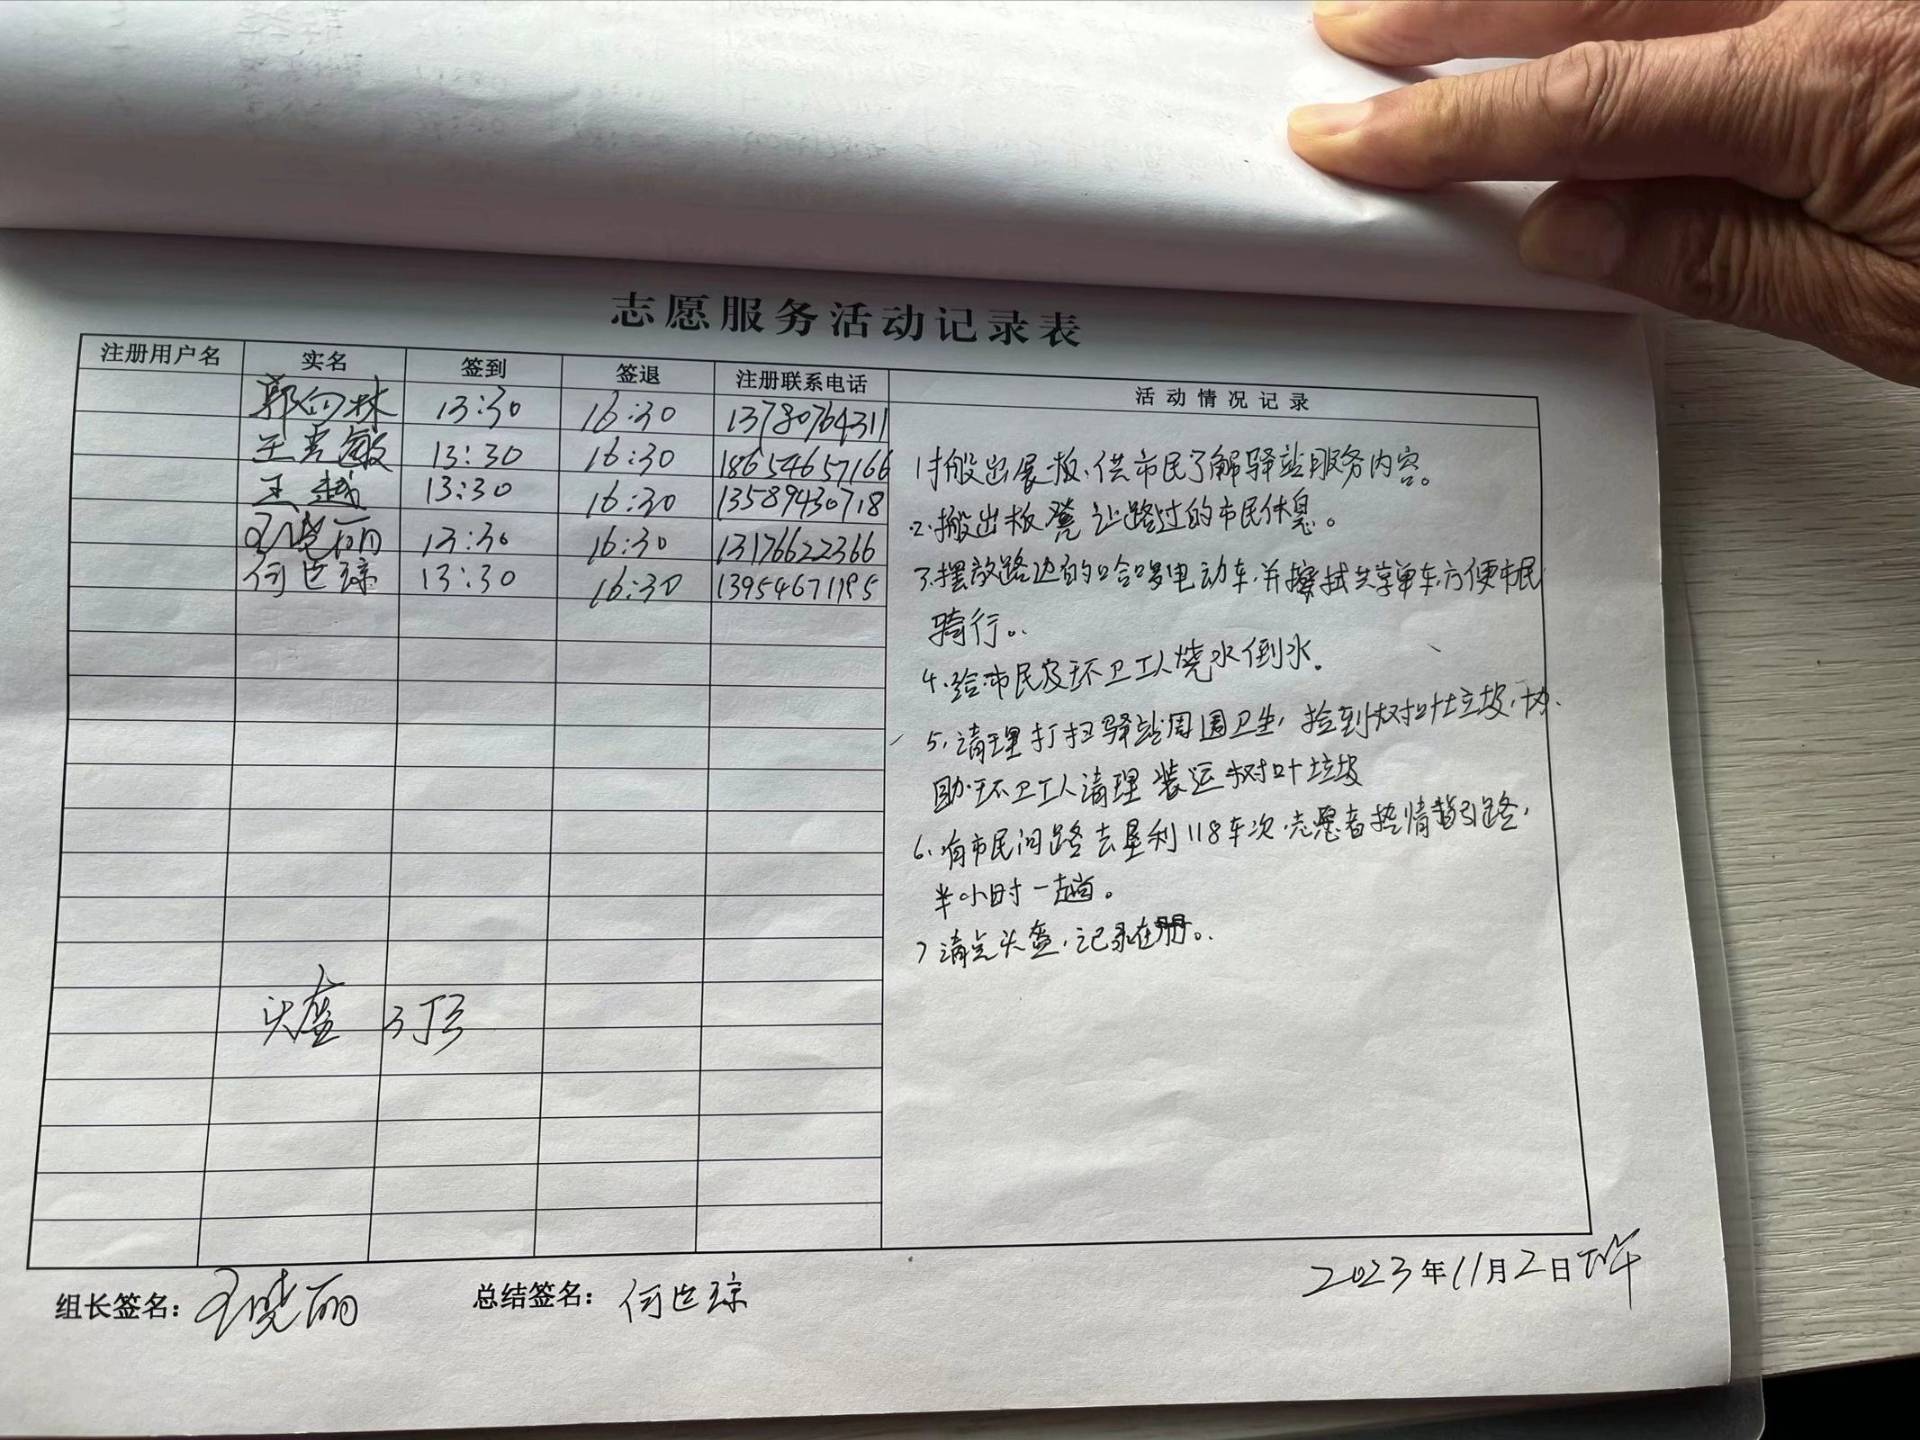 志愿服务活动记录表
注册用户名 实名 签到 签退 注册联系电话 活动情况记录
郭向林 13:30 16:30 13780764311
王秀敏 13:30 16:30 18654657166
王越 13:30 16:30 13589430718
王晓丽 13:30 16:30 13176622366
何世琼 13:30 16:30 13954671195
1、搬出展板、供市民了解驿站服务内容。
2、搬出板凳 让路过的市民休息。
3、摆放路边的哈啰电动车,并擦拭共享单车,方便市民
骑行。
4、给市民及环卫工人烧水倒水。
5、清理打扫驿站周围卫生,捡到树叶垃圾,协
助环卫工人清理装运树叶垃圾
6、有市民问路去垦利118车次,志愿者热情指引路,
半小时一趟。
7 清点头盔,记录在册。
头盔 3顶
组长签名: 王晓丽 总结签名: 何世琼
2023年11月2日下午